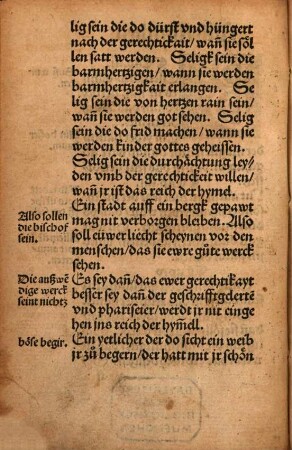 lig sein die do dürst vnd hüngert
nach der gerechtickait/ wañ sie söl
len satt werden. Seligk sein die
barmhertzigen/ wann sie werden
barmhertzigkait erlangen. Se
lig sein die von hertzen rain sein/
wañ sie werden got sehen. Selig
sein die do frid machen/ wann sie
werden kinder gottes geheissen.
Selig sein die durchächtung ley-
den vmb der gerechtickeit willen/
wañ jr ist das reich der hymel.
Ein stadt auff ein bergk gepawt
Also sollen
mag nit verborgen bleiben. Also
die bischof
soll euwer liecht scheynen vor den
sein.
menschen/ das sie ewre güte werck
sehen.
Die außwẽ
Es sey dañ/ das ewer gerechtikayt
dige werck
besser sey dañ der geschrifftgelertẽ
seint nichtz
vnd phariseier/ werdt jr nit einge
hen jns reich der hym̃ell.
böse begir.
Ein yetlicher der do sicht ein weib
jr zů begern/ der hatt mit jr schõn